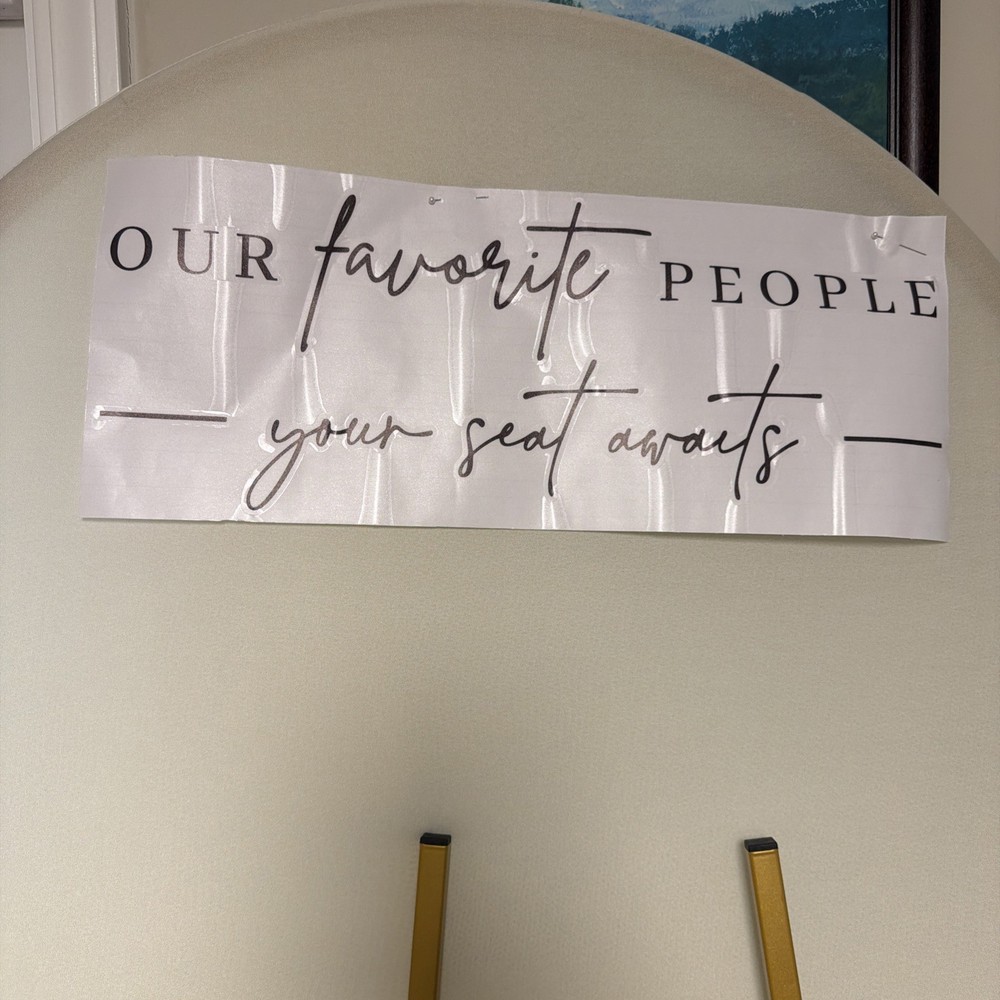 OUR favorite PEOPLE
your seat awaits